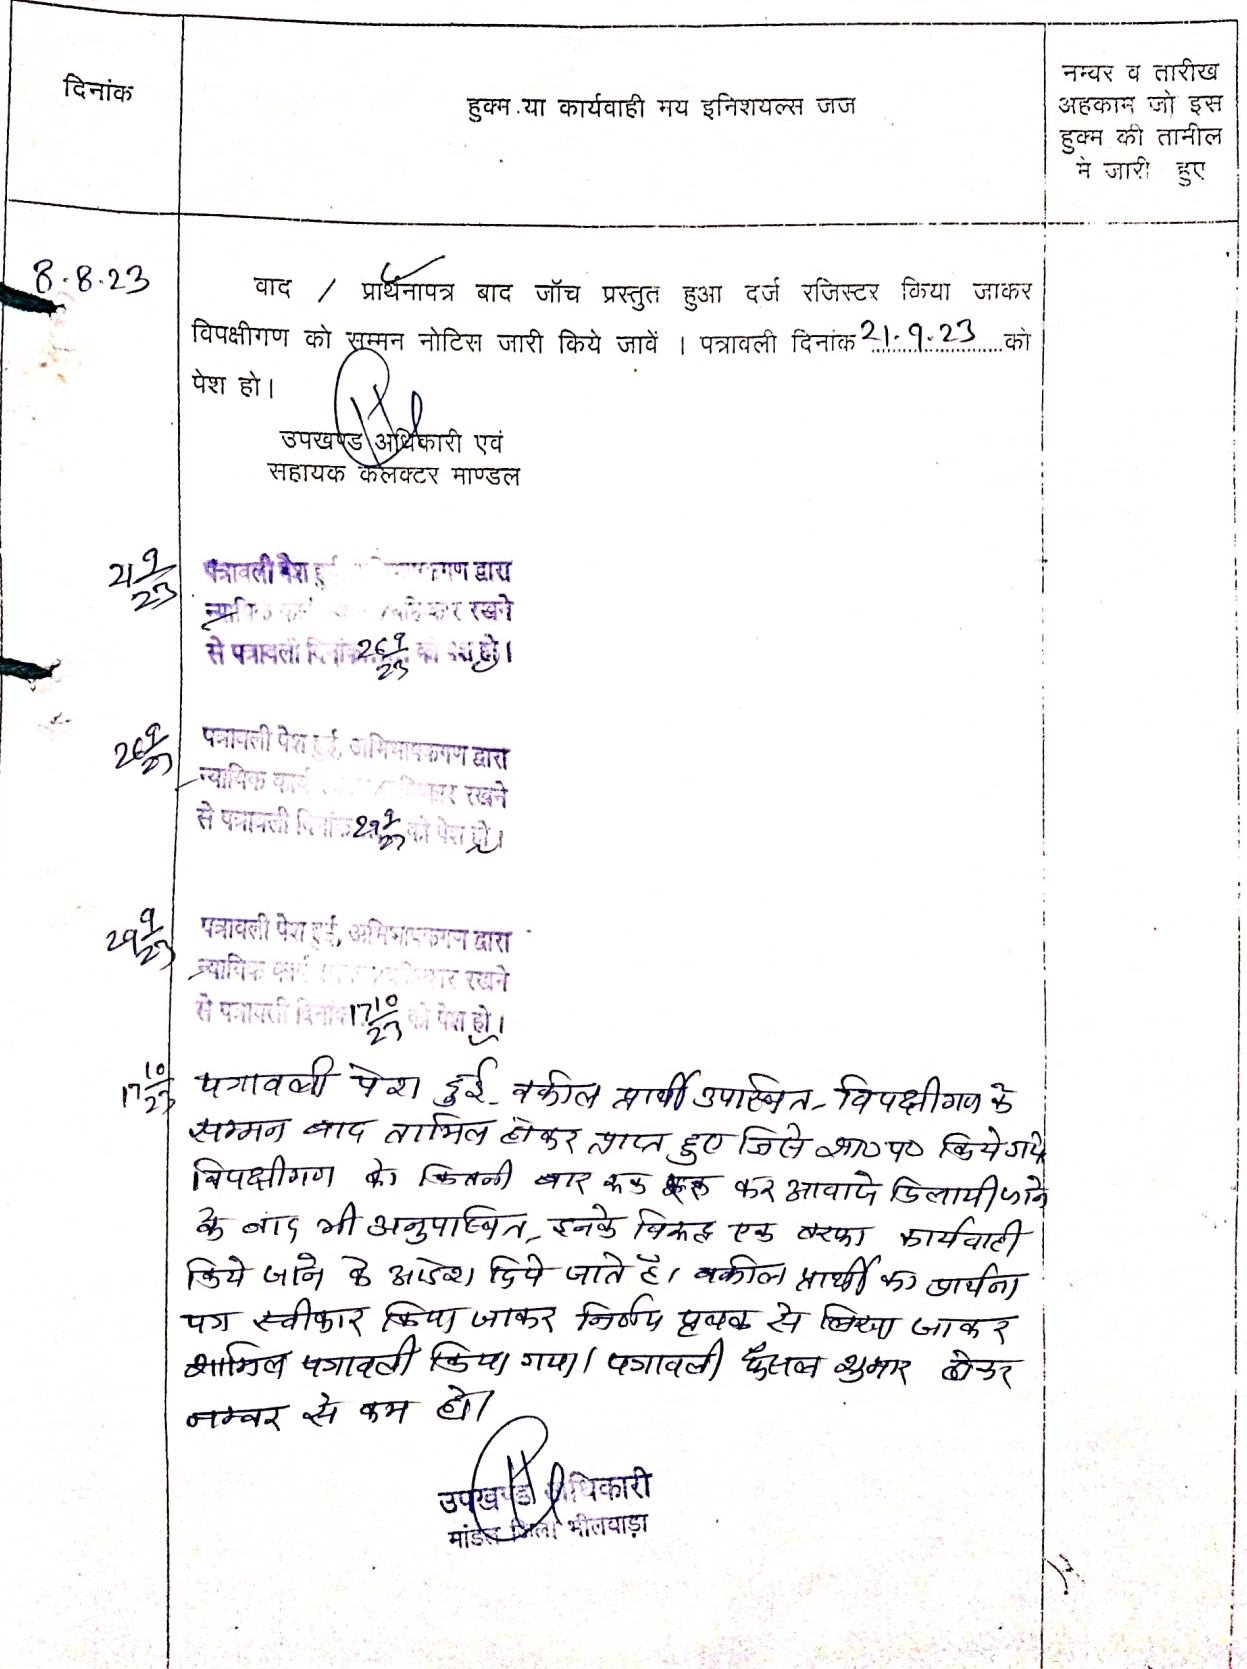 दिनांक
हुक्म या कार्यवाही मय इनिशयल्स जज
नम्वर व तारीख
अहकाम जो इस
हुक्म की तामील
मे जारी हुए
8.8.23
वाद / प्रार्थनापत्र बाद जॉच प्रस्तुत हुआ दर्ज रजिस्टर किया जाकर
विपक्षीगण को सम्मन नोटिस जारी किये जावें । पत्रावली दिनांक 21.9.23 को
पेश हो।
उपखण्ड अधिकारी एवं
सहायक कलक्टर माण्डल
21 9/23
पत्रावली पेश हुई, द्वारा
न्यायिक रखने
से पत्रावली दिनांक 26 9/23 को पेश हो।
26 9/23
पत्रावली पेश हुई, अभिभाषकगण द्वारा
न्यायिक कार्य रखने
से पत्रावली दिनांक 29 9/23 को पेश हो।
29 9/23
पत्रावली पेश हुई, अभिभाषकगण द्वारा
न्यायिक कार्य रखने
से पत्रावली दिनांक 17 10/23 को पेश हो।
17 10/23
पत्रावली पेश हुई. वकील प्रार्थी उपस्थित, विपक्षीगण के
सम्मन बाद तामिल होकर प्राप्त हुए जिसे शा०प० किये गये
विपक्षीगण को कितनी बार रूक रूक कर आवाजे दिलायी जाने
के बाद भी अनुपस्थित, इनके विरूद्ध एक तरफा कार्यवाही
किये जाने के आदेश दिये जाते है। वकील प्रार्थी का प्रार्थना
पत्र स्वीकार किया जाकर निर्णय पृथक से लिखा जाकर
शामिल पत्रावली किया गया। पत्रावली फैसल शुमार होकर
नम्बर से कम हो।
उपखण्ड अधिकारी
मांडल जिला भीलवाड़ा